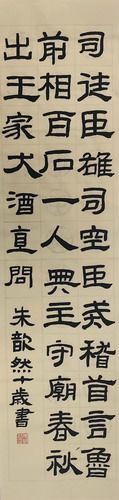 司徒臣雄司空臣戒稽首言魯
前相百石一人典主守廟春秋
出王家犬酒直問
朱歆然十歲書